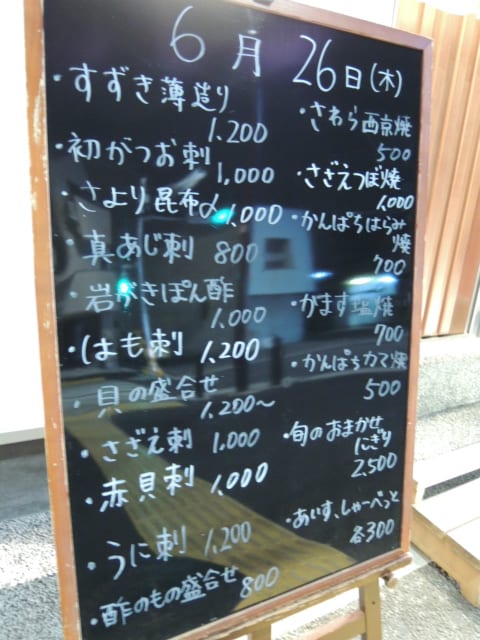 6月 26日(木)
・すずき薄造り
1,200
・初がつお刺
1,000
・さより昆布〆
1,000
・真あじ刺 800
・岩がきぽん酢
1,000
・はも刺 1,200
・貝の盛合せ
1,200〜
・さざえ刺 1,000
・赤貝刺 1,000
・うに刺 1,200
・酢のもの盛合せ 800
・さわら西京焼
500
・さざえつぼ焼
1,000
・かんぱちはらみ
焼
700
・かます塩焼
700
・かんぱちカマ焼
500
・旬のおまかせ
にぎり
2,500
・あいす、しゃーべっと
各300